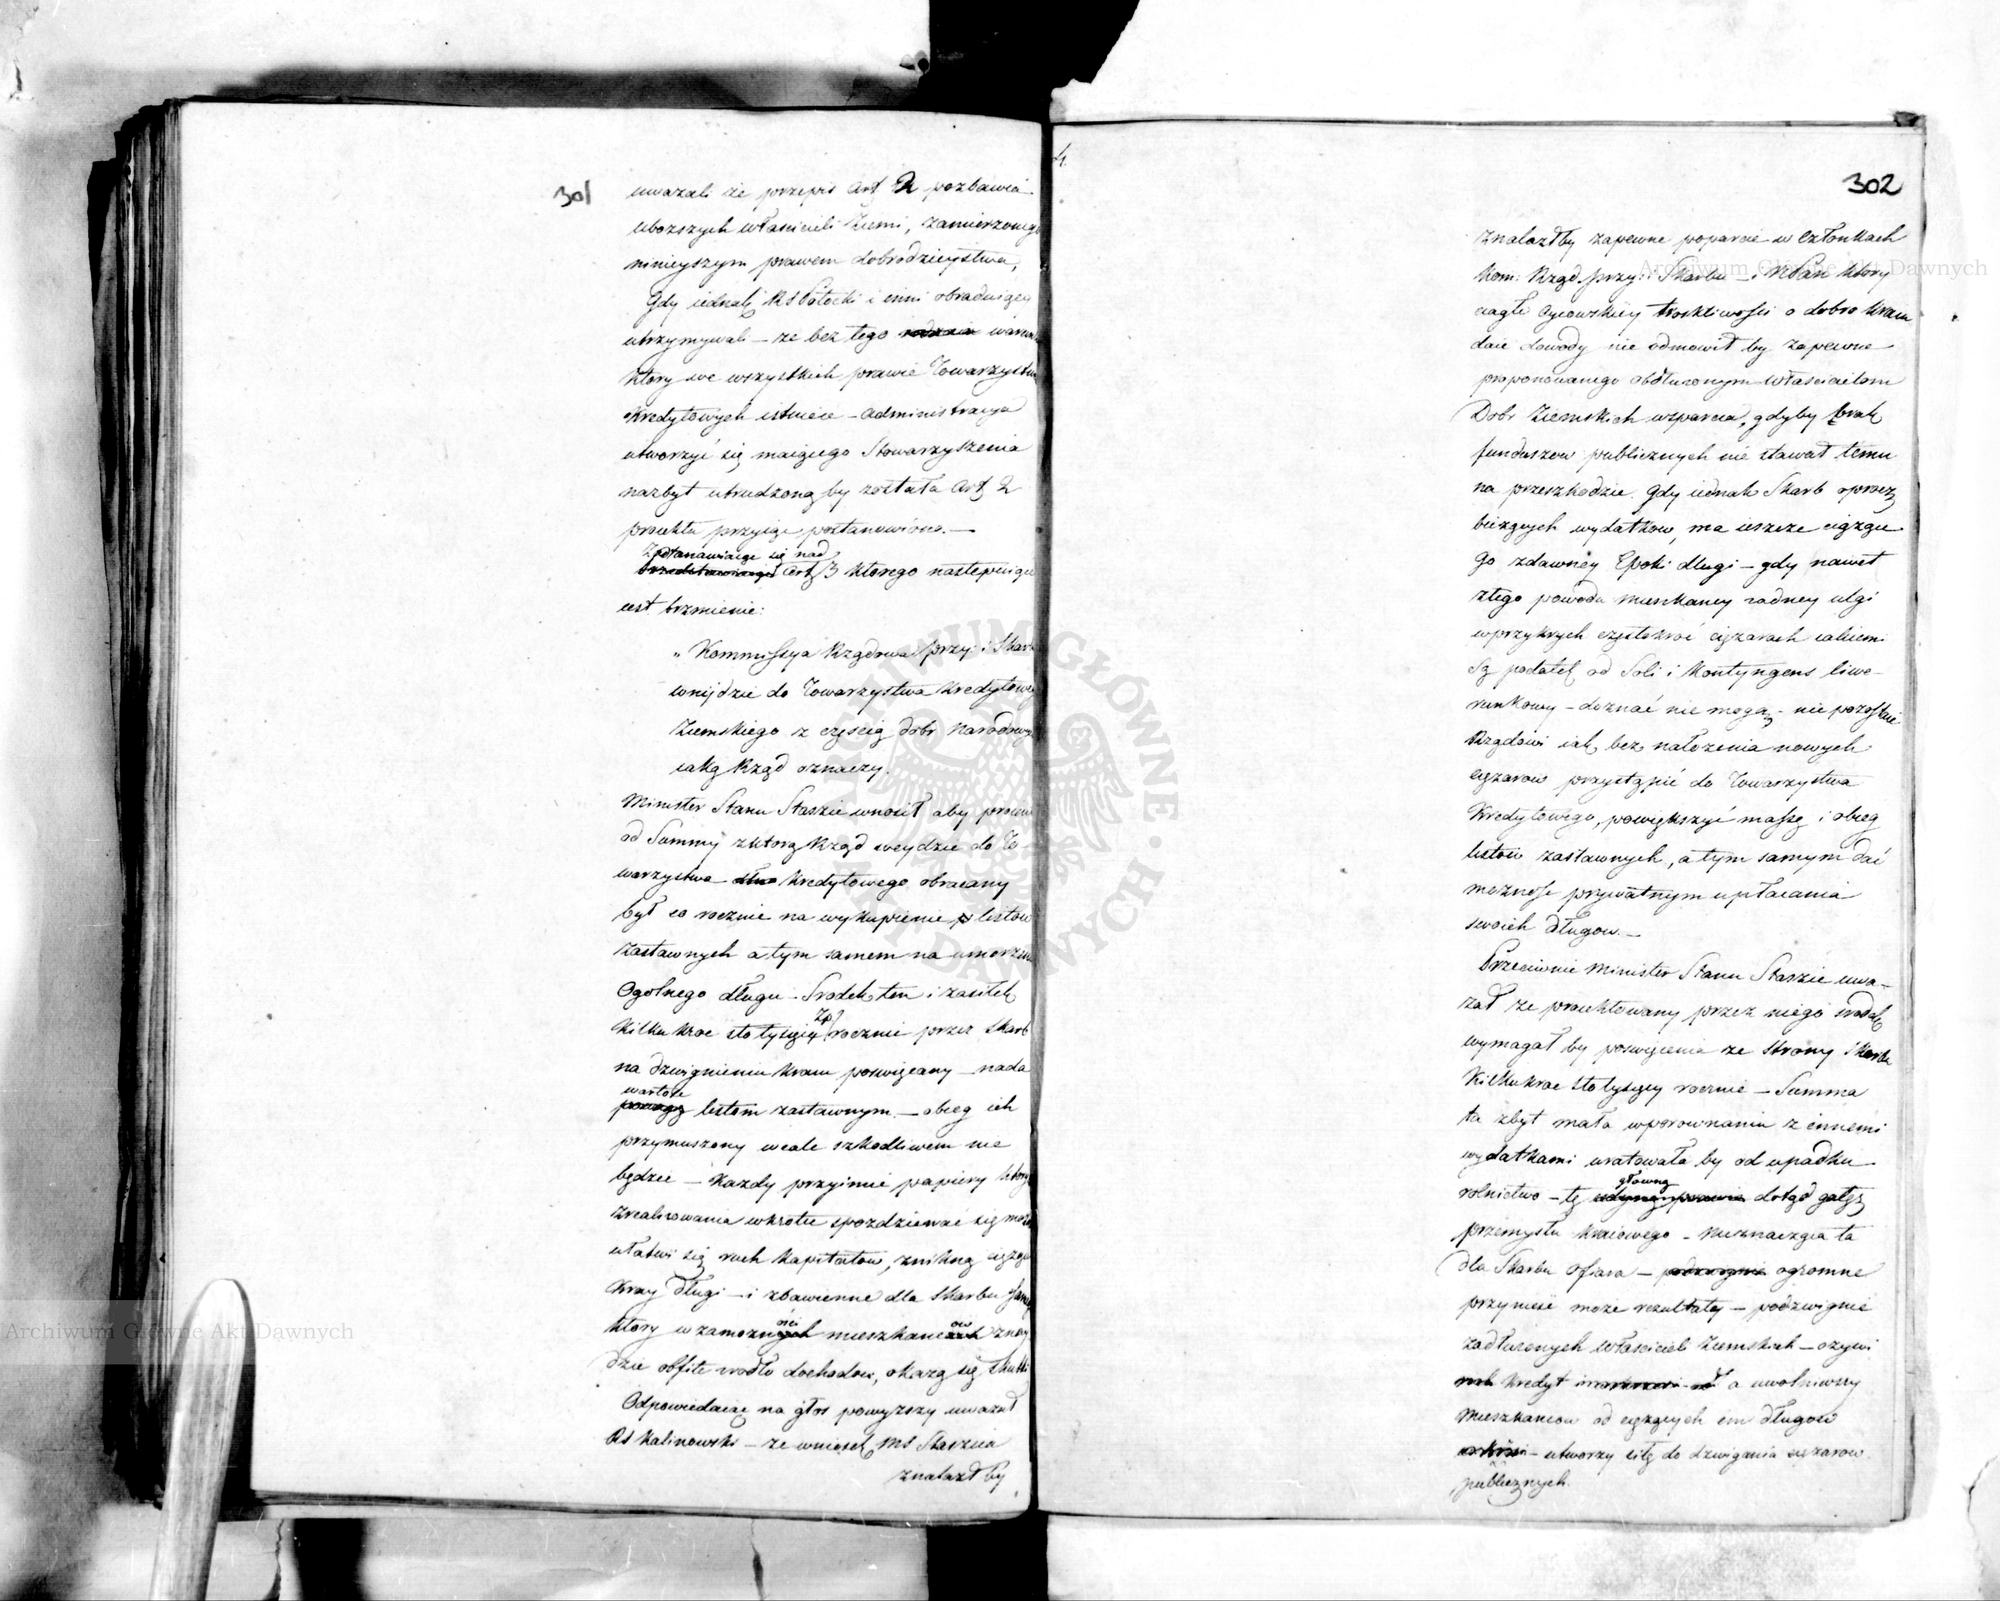 301
uwazali że przepis Art 2 pozbawia
uboższych właścicieli Ziemi, zamierzonego
ninieyszym prawem dobrodzieystwa,
Gdy iednak RS Potocki i inni obraduiący
utrzymywali – że bez tego warunku
ktory we wszystkich prawie Towarzystwach
Kredytowych istnieie – administracya
utworzyć się maiącego Stowarzyszenia
nazbyt utrudzoną by została Art 2
proiektu przyięce postanowiono. –
Zastanawiaiąc się nad
Art 3 ktorego następuiące
iest brzmienie:
„Kommissya Rządowa przy: i Skarbu
wnijdzie do Towarzystwa Kredytowego
Ziemskiego z częścią dobr Narodowych
iaką Rząd oznaczy.
Minister Stanu Staszic wnosił aby procent
od Summy z ktorą Rząd weydzie do To-
warzystwa Kredytowego, obracany
był co rocznie na wykupienie listow
zastawnych a tym samem na umorzenie
Ogolnego długu – Srodek ten i zasiłek
Kilku kroc sto tysięcy Zp rocznie przez Skarb
na dzwignienie Kraiu poswięcany – nada
wartość
listom zastawnym – obieg ich
przymuszony wcale szkodliwem nie
będzie – Każdy przyimie papiery ktorych
zrealizowania wkrotce spodziewać się może
ułatwi się ruch Kapitałow, znikną ciążące
Kray długi – i zbawienne dla Skarbu
ktory w zamożności mieszkancow znay-
dzie obfite zrodło dochodow, okażą się skutki
Odpowiadaiąc na głos powyższy uważał
RS Kalinowski – że wniosek MS Staszica
znalazł by
4.
302
znalazłby zapewne poparcie w Członkach
Kom: Rząd. przy: i Skarbu – i XPan ktory
ciągłe Oycowskiey troskliwości o dobro Kraiu
daie dowody nie odmowił by zapewne
proponowanego obdłużonym właścicielom
Dobr Ziemskich wsparcia, gdyby brak
funduszow publicznych nie stawał temu
na przeszkodzie. Gdy iednak Skarb oprocz
bieżących wydatkow, ma ieszcze ciążące
go z dawney Epoki długi – gdy nawet
z tego powodu mieszkancy żadney ulgi
w przykrych częstokroć ciężarach iakiemi
są podatek od Soli i Kontyngens liwe-
runkowy – doznać nie mogą – nie pozostaie
Rządowi iak bez nałożenia nowych
ciężarow przystąpić do Towarzystwa
Kredytowego, powiększyć massę i obieg
listow zastawnych, a tym samym dać
możność prywatnym upłacania
swoich długow. –
Przeciwnie Minister Stanu Staszic uwa-
żał że proiektowany przez niego srodek
wymagał by poswięcenia ze strony Skarbu
Kilkukroc sto tysięcy rocznie – Summa
ta zbyt mała w porownaniu z innemi
wydatkami uratowała by od upadku
głowną
rolnictwo – tę dotąd gałąź
przemysłu kraiowego – Nieznacząca ta
dla Skarbu Ofiara – ogromne
przynieść może rezultaty – podzwignie
zadłużonych właścicieli Ziemskich – ożywi
Kredyt a uwolniwszy
Mieszkancow od ciążących im długow
– utworzy siłę do dzwigania ciężarow
publicznych.
Archiwum Główne Akt Dawnych
Archiwum Główne Akt Dawnych
ARCHIWUM GŁÓWNE AKT DAWNYCH